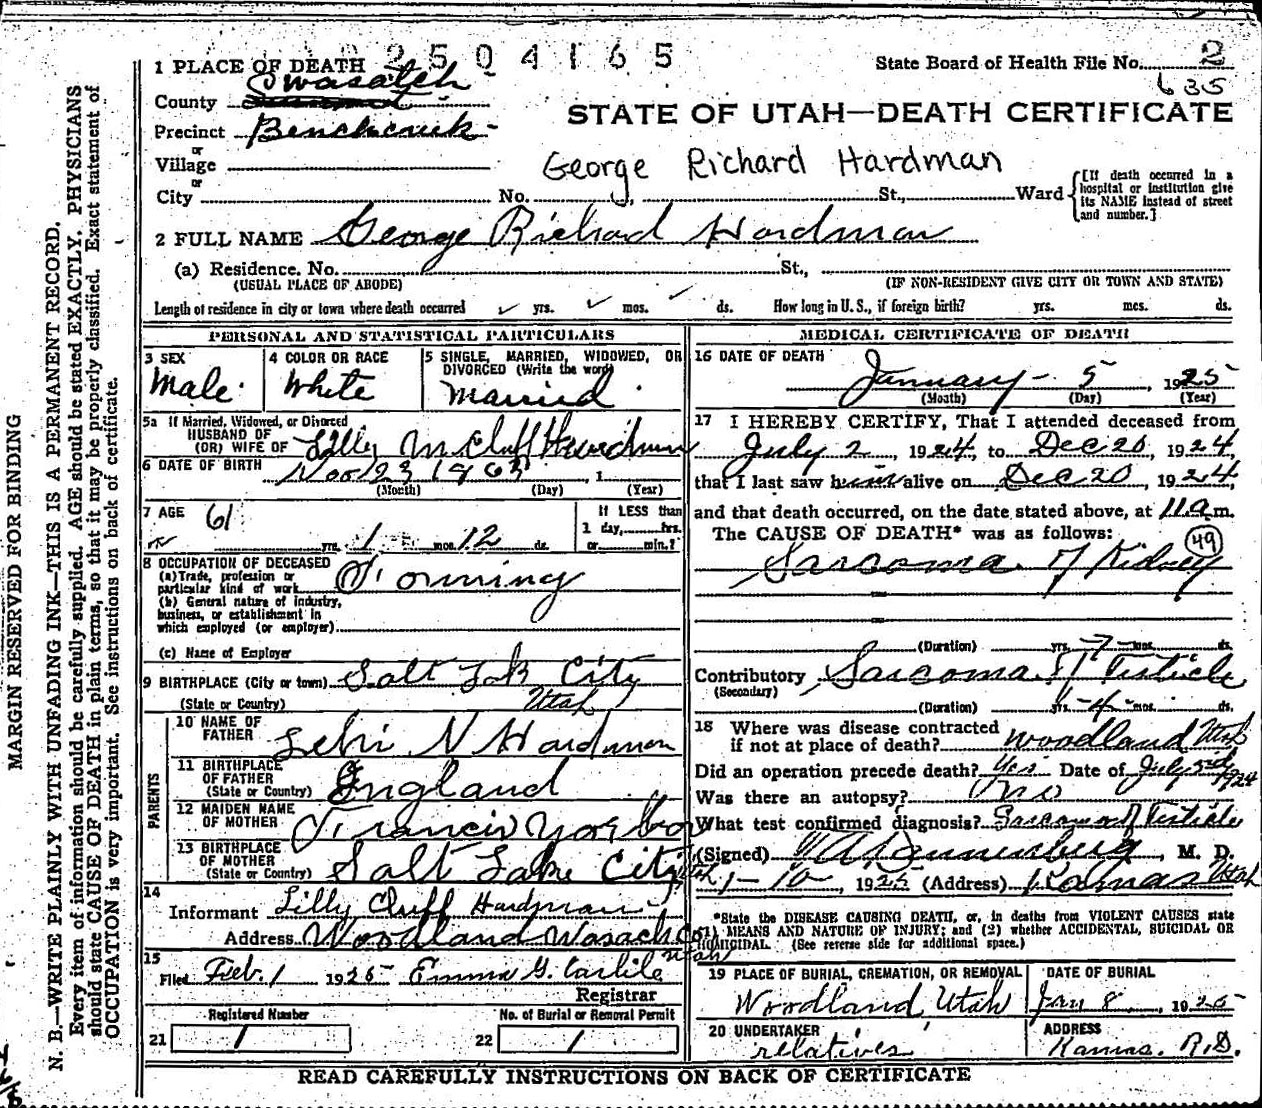 2504165
1 PLACE OF DEATH
State Board of Health File No. 2
635
County Wasatch
STATE OF UTAH—DEATH CERTIFICATE
Precinct Benchcreek
or
Village
George Richard Hardman
or
City No. St., Ward
[If death occurred in a hospital or institution give its NAME instead of street and number.]
2 FULL NAME George Richard Hardman
(a) Residence. No. St.,
(USUAL PLACE OF ABODE) (IF NON-RESIDENT GIVE CITY OR TOWN AND STATE)
Length of residence in city or town where death occurred yrs. mos. ds. How long in U. S., if foreign birth? yrs. mos. ds.
PERSONAL AND STATISTICAL PARTICULARS
3 SEX
Male
4 COLOR OR RACE
White
5 SINGLE, MARRIED, WIDOWED, OR
DIVORCED (Write the word)
Married
5a If Married, Widowed, or Divorced
HUSBAND OF
(OR) WIFE OF Lilly M Cluff Hardman
6 DATE OF BIRTH Nov 23 1863 1
(Month) (Day) (Year)
7 AGE 61
yrs. 1 mos. 12 ds.
If LESS than
1 day, hrs.
or min.?
8 OCCUPATION OF DECEASED
(a) Trade, profession or
particular kind of work Farming
(b) General nature of industry,
business, or establishment in
which employed (or employer)
(c) Name of Employer
9 BIRTHPLACE (City or town) Salt Lak City
(State or Country) Utah
PARENTS
10 NAME OF
FATHER Lehi N Hardman
11 BIRTHPLACE
OF FATHER
(State or Country) England
12 MAIDEN NAME
OF MOTHER Francis
13 BIRTHPLACE
OF MOTHER
(State or Country) Salt Lake City Utah
14
Informant Lilly Cluff Hardman
Address Woodland Wasach Co Utah
15
Filed Feb. 1 1925 Emma G. Carlile
Registrar
Registered Number
21 1
No. of Burial or Removal Permit
22 1
MEDICAL CERTIFICATE OF DEATH
16 DATE OF DEATH
January - 5, 1925
(Month) (Day) (Year)
17 I HEREBY CERTIFY, That I attended deceased from
July 2, 1924, to Dec 20, 1924,
that I last saw him alive on Dec 20, 1924,
and that death occurred, on the date stated above, at 11 a m.
The CAUSE OF DEATH* was as follows: 49
Sarcoma of Kidney
(Duration) yrs. 7 mos. ds.
Contributory Sarcoma of Testicle
(Secondary)
(Duration) yrs. 4 mos. ds.
18 Where was disease contracted
if not at place of death? Woodland Utah
Did an operation precede death? Yes Date of July 3rd 1924
Was there an autopsy? no
What test confirmed diagnosis? Sarcoma of Testicle
(Signed) , M. D.
1-10, 1925 (Address) Kamas Utah
*State the DISEASE CAUSING DEATH, or, in deaths from VIOLENT CAUSES state
(1) MEANS AND NATURE OF INJURY; and (2) whether ACCIDENTAL, SUICIDAL OR
HOMICIDAL. (See reverse side for additional space.)
19 PLACE OF BURIAL, CREMATION, OR REMOVAL
Woodland, Utah
DATE OF BURIAL
Jan 8, 1925
20 UNDERTAKER
relatives
ADDRESS
Kamas. R.D.
READ CAREFULLY INSTRUCTIONS ON BACK OF CERTIFICATE
MARGIN RESERVED FOR BINDING
N. B.—WRITE PLAINLY WITH UNFADING INK—THIS IS A PERMANENT RECORD.
Every item of information should be carefully supplied. AGE should be stated EXACTLY. PHYSICIANS
should state CAUSE OF DEATH in plain terms, so that it may be properly classified. Exact statement of
OCCUPATION is very important. See instructions on back of certificate.